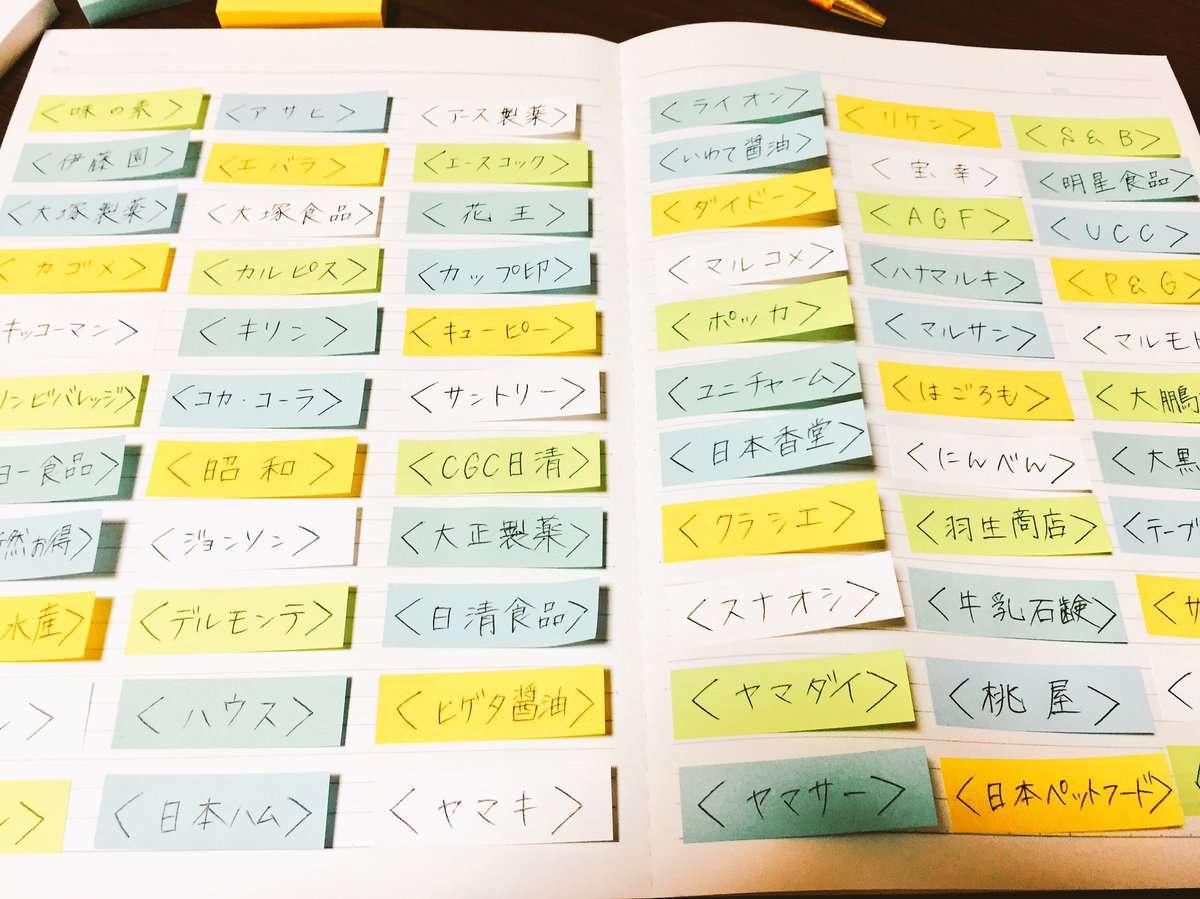 <味の素> <アサヒ> <アース製薬>
<伊藤園> <エバラ> <エースコック>
<大塚製薬> <大塚食品> <花王>
カゴメ> <カルピス> <カップ印>
キッコーマン> <キリン> <キューピー>
ンビバレッジ> <コカ・コーラ> <サントリー>
ヨー食品> <昭和> <CGC日清>
然お得> <ジョンソン> <大正製薬>
水産> <デルモンテ> <日清食品>
> <ハウス> <ヒゲタ醤油>
> <日本ハム> <ヤマキ>
<ライオン> <リケン> <S&B>
<いわて醤油> <宝幸> <明星食品>
<ダイドー> <AGF> <UCC>
<マルコメ> <ハナマルキ> <P&G>
<ポッカ> <マルサン> <マルモト
<ユニチャーム> <はごろも> <大鵬
<日本香堂> <にんべん> <大黒
<クラシエ> <羽生商店> <テーブ
<スナオシ> <牛乳石鹸> <サ
<ヤマダイ> <桃屋> <
<ヤマサー> <日本ペットフード> <